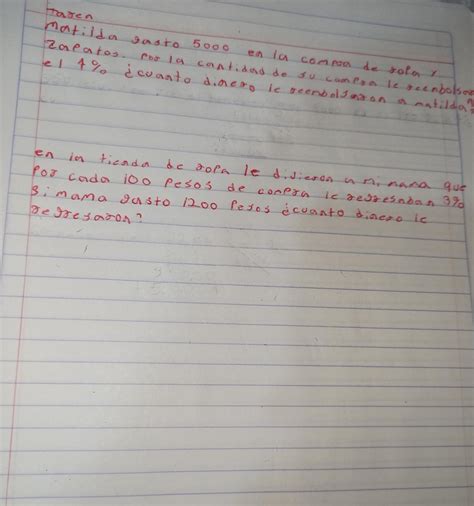 Taren
Matilda gasto 5000 en la compra de ropa y
zapatos. Por la cantidad de su compra le reenbolsoe
el 4% ¿cuanto dinero le reenbolsaron a matilda?
en la tienda de ropa le dijeron a mi mama que
por cada 100 pesos de conpra le regresaban 3%
si mama gasto 1200 pesos ¿cuanto dinero le
regresaron?